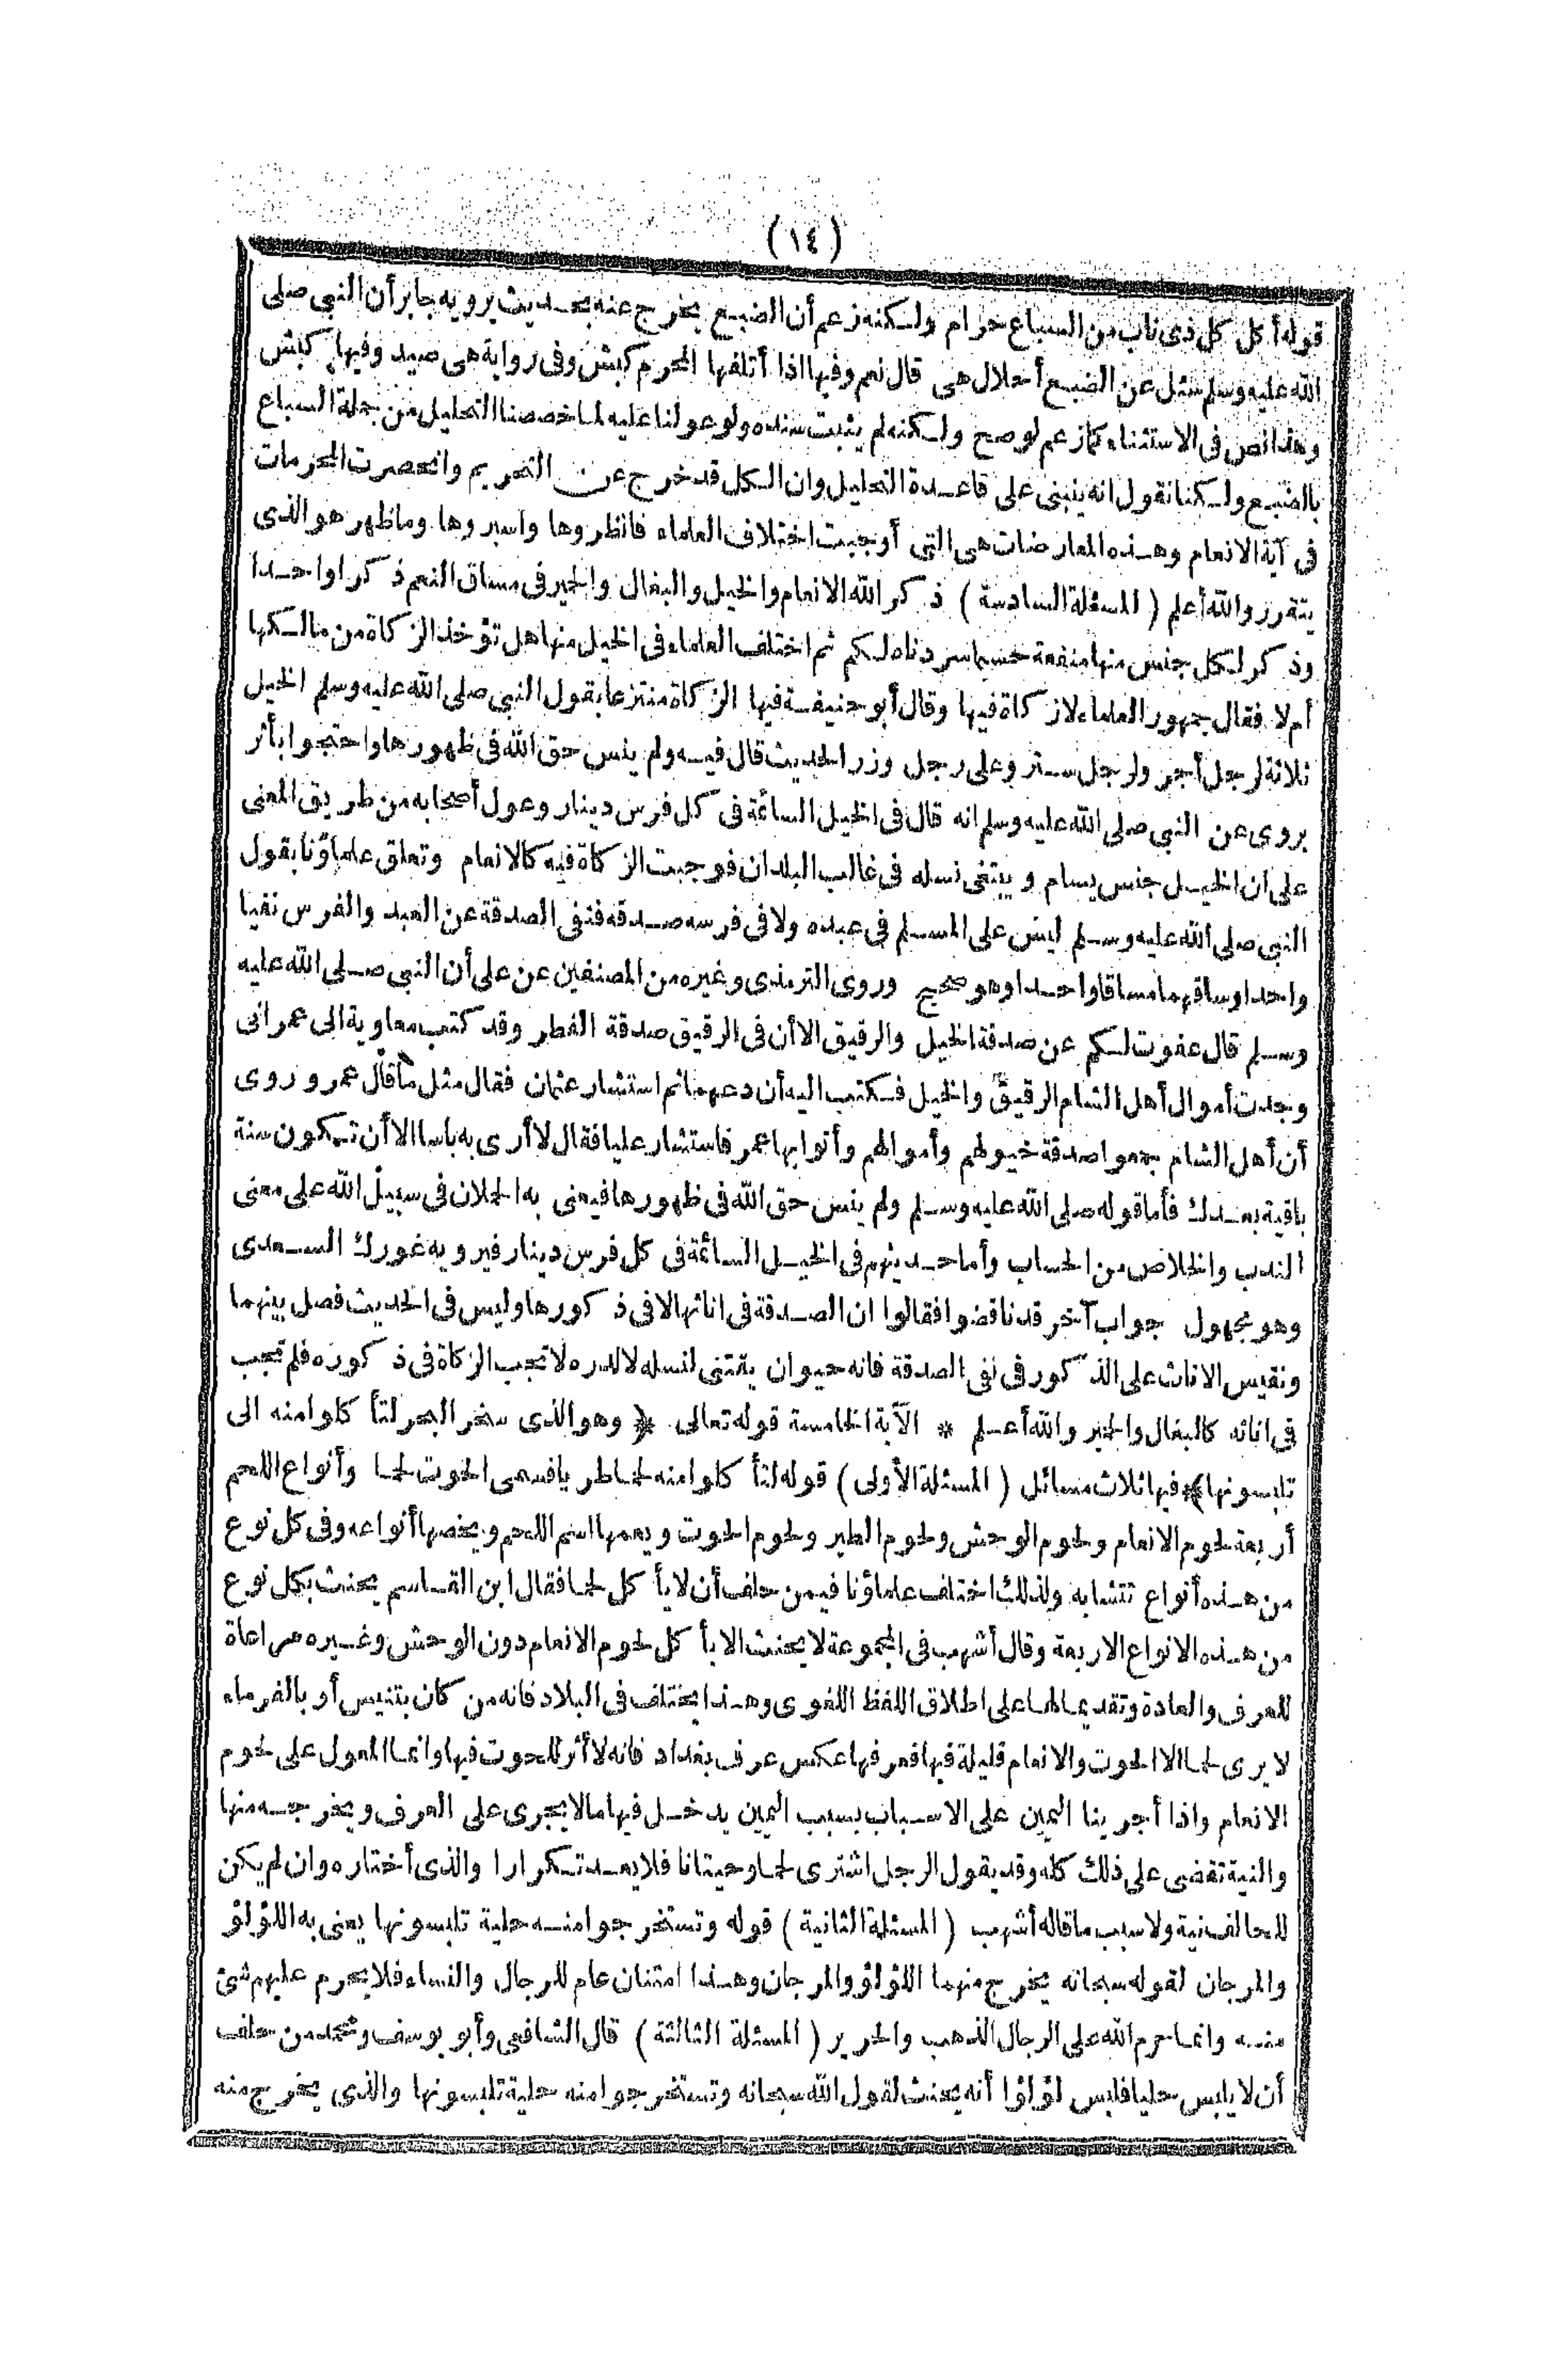 (١٤)
قوله أكل كل ذى ناب من السباع حرام ولكنه زعم أن الضبع يخرج عنه بحديث يرويه جابر أن النبى صلى
الله عليه وسلم سئل عن الضبع أحلال هى قال نعم وفيها اذا أتلفها المحرم كبش وفى رواية هى صيد وفيها كبش
وهذا نص فى الاستثناء كما زعم لو صح ولكنه لم يثبت سنده ولو عولنا عليه لما خصصنا التحليل من جملة السباع
بالضبع ولكنا نقول انه ينبنى على قاعدة التحليل وان الكل قد خرج عن التحريم وانحصرت المحرمات
فى آية الانعام وهذه المعارضات هى التى أوجبت اختلاف العلماء فانظروها واسبروها وما ظهر هو الذى
يتقرر والله أعلم (المسئلة السادسة) ذكر الله الانعام والخيل والبغال والحمير فى مساق النعم ذكرا واحدا
وذكر لكل جنس منها منفعة حسبما سردناه لكم ثم اختلف العلماء فى الخيل منها هل تؤخذ الزكاة من مالكها
أم لا فقال جمهور العلماء لا زكاة فيها وقال أبو حنيفة فيها الزكاة منتزعا بقول النبى صلى الله عليه وسلم الخيل
ثلاثة لرجل أجر ولرجل ستر وعلى رجل وزر الحديث قال فيه ولم ينس حق الله فى ظهورها واحتجوا بأثر
يروى عن النبى صلى الله عليه وسلم انه قال فى الخيل السائمة فى كل فرس دينار وعول أصحابه من طريق المعنى
على ان الخيل جنس يسام ويبتغى نسله فى غالب البلدان فوجبت الزكاة فيه كالانعام وتعلق علماؤنا بقول
النبى صلى الله عليه وسلم ليس على المسلم فى عبده ولا فى فرسه صدقة فنفى الصدقة عن العبد والفرس نفيا
واحدا وساقهما مساقا واحدا وهو صحيح وروى الترمذى وغيره من المصنفين عن على أن النبى صلى الله عليه
وسلم قال عفوت لكم عن صدقة الخيل والرقيق الا أن فى الرقيق صدقة الفطر وقد كتب معاوية الى عمر انى
وجدت أموال أهل الشام الرقيق والخيل فكتب اليه أن دعهما ثم استشار عثمان فقال مثل ما قال عمر وروى
أن أهل الشام جمعوا صدقة خيولهم وأموالهم وأتوا بها عمر فاستشار عليا فقال لا أرى به باسا الا أن تكون سنة
باقية بعدك فأما قوله صلى الله عليه وسلم ولم ينس حق الله فى ظهورها فيعنى به الحملان فى سبيل الله على معنى
الندب والخلاص من الحساب وأما حديثهم فى الخيل السائمة فى كل فرس دينار فيرويه غورك السعدى
وهو مجهول جواب آخر قد ناقضوا فقالوا ان الصدقة فى اناثها لا فى ذكورها وليس فى الحديث فصل بينهما
ونقيس الاناث على الذكور فى نفى الصدقة فانه حيوان يقتنى لنسله لا لدره لا تجب الزكاة فى ذكوره فلم تجب
فى اناثه كالبغال والحمير والله أعلم * الآية الخامسة قوله تعالى ﴿ وهو الذى سخر البحر لتأكلوا منه الى
تلبسونها﴾ فيها ثلاث مسائل (المسئلة الأولى) قوله لتأكلوا منه لحما طريا فسمى الحوت لحما وأنواع اللحم
أربعة لحوم الانعام ولحوم الوحش ولحوم الطير ولحوم الحوت ويعمها اسم اللحم ويخصها أنواعه وفى كل نوع
من هذه أنواع تتشابه ولذلك اختلف علماؤنا فيمن حلف أن لا يأكل لحما فقال ابن القاسم يحنث بكل نوع
من هذه الانواع الاربعة وقال أشهب فى المجموعة لا يحنث الا بأكل لحوم الانعام دون الوحش وغيره مراعاة
للعرف والعادة وتقديما لها على اطلاق اللفظ اللغوى وهذا يختلف فى البلاد فانه من كان بتنيس أو بالفرماء
لا يرى لحما الا الحوت والانعام قليلة فيها فعرفها عكس عرف بغداد فانه لا أثر للحوت فيها وانما المعول على لحوم
الانعام واذا أجرينا اليمين على الاسباب بسبب اليمين يدخل فيها ما لا يجرى على العرف ويخرجه منها
والنية تقضى على ذلك كله وقد يقول الرجل اشترى لحما وحيتانا فلا يعد تكرارا والذى أختاره وان لم يكن
للحالف نية ولا سبب ما قاله أشهب (المسئلة الثانية) قوله وتستخرجوا منه حلية تلبسونها يعنى به اللؤلؤ
والمرجان لقوله سبحانه يخرج منهما اللؤلؤ والمرجان وهذا امتنان عام للرجال والنساء فلا يحرم عليهم شئ
منه وانما حرم الله على الرجال الذهب والحرير (المسئلة الثالثة) قال الشافعى وأبو يوسف ومحمد من حلف
أن لا يلبس حليا فلبس لؤلؤا أنه يحنث لقول الله سبحانه وتستخرجوا منه حلية تلبسونها والذى يخرج منه